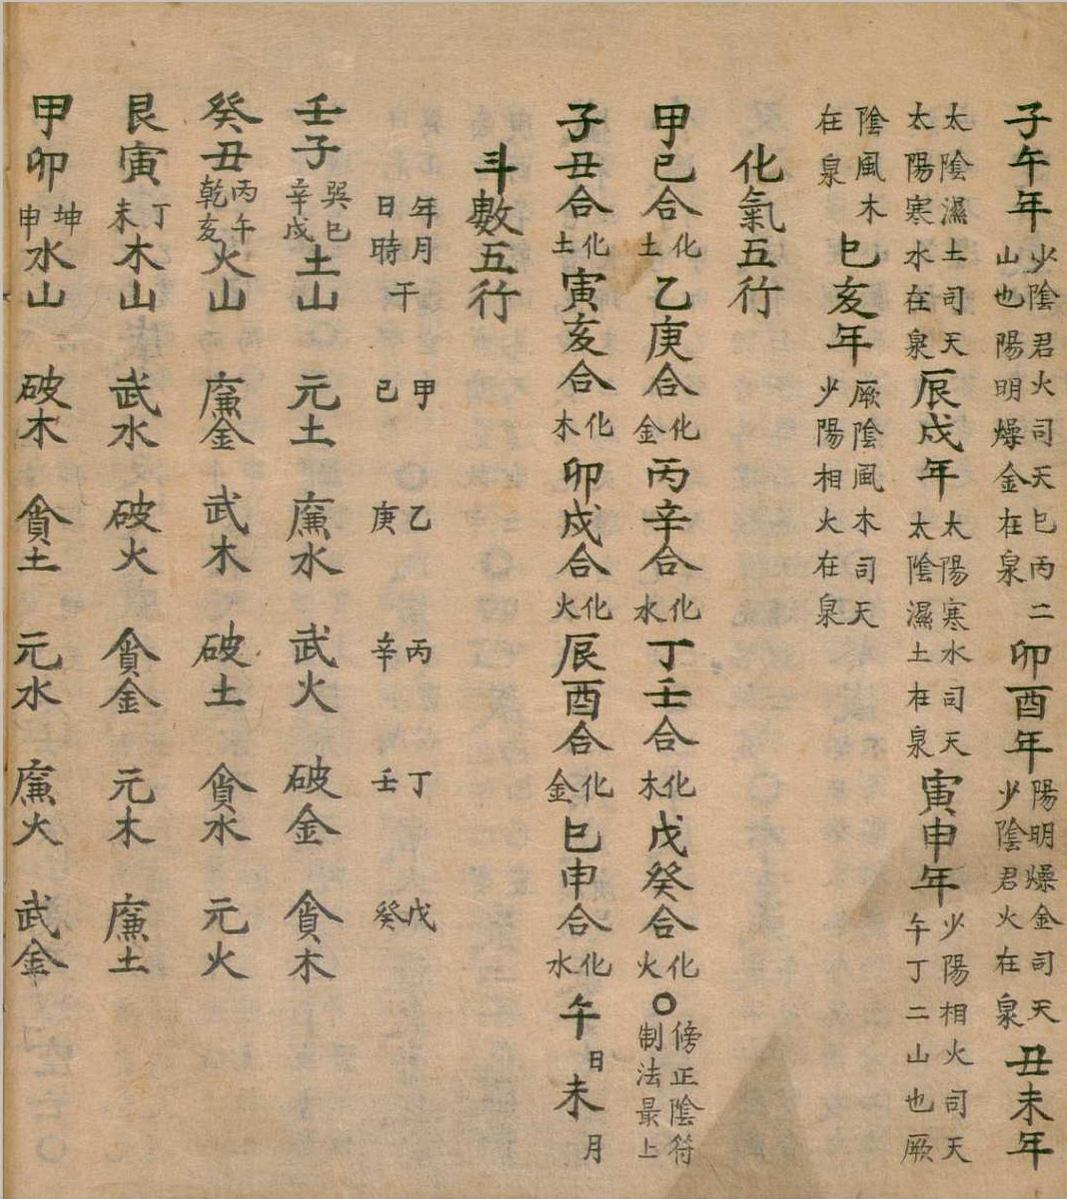 子午年少陰君火司天巳丙二山也陽明燥金在泉卯酉年陽明燥金司天少陰君火在泉丑未年
太陰濕土司天太陽寒水在泉辰戌年太陽寒水司天太陰濕土在泉寅申年少陽相火司天午丁二山也厥
陰風木在泉巳亥年厥陰風木司天少陽相火在泉
化氣五行
甲己合化土乙庚合化金丙辛合化水丁壬合化木戊癸合化火○傍正陰符制法最上
子丑合化土寅亥合化木卯戌合化火辰酉合化金巳申合化水午日未月
斗數五行
年月日時干 甲己 乙庚 丙辛 丁壬 戊癸
壬子巽巳辛戌土山 元土 廉水 武火 破金 貪木
癸丑丙午乾亥火山 廉金 武木 破土 貪水 元火
艮寅丁未木山 武水 破火 貪金 元木 廉土
甲卯坤申水山 破木 貪土 元水 廉火 武金